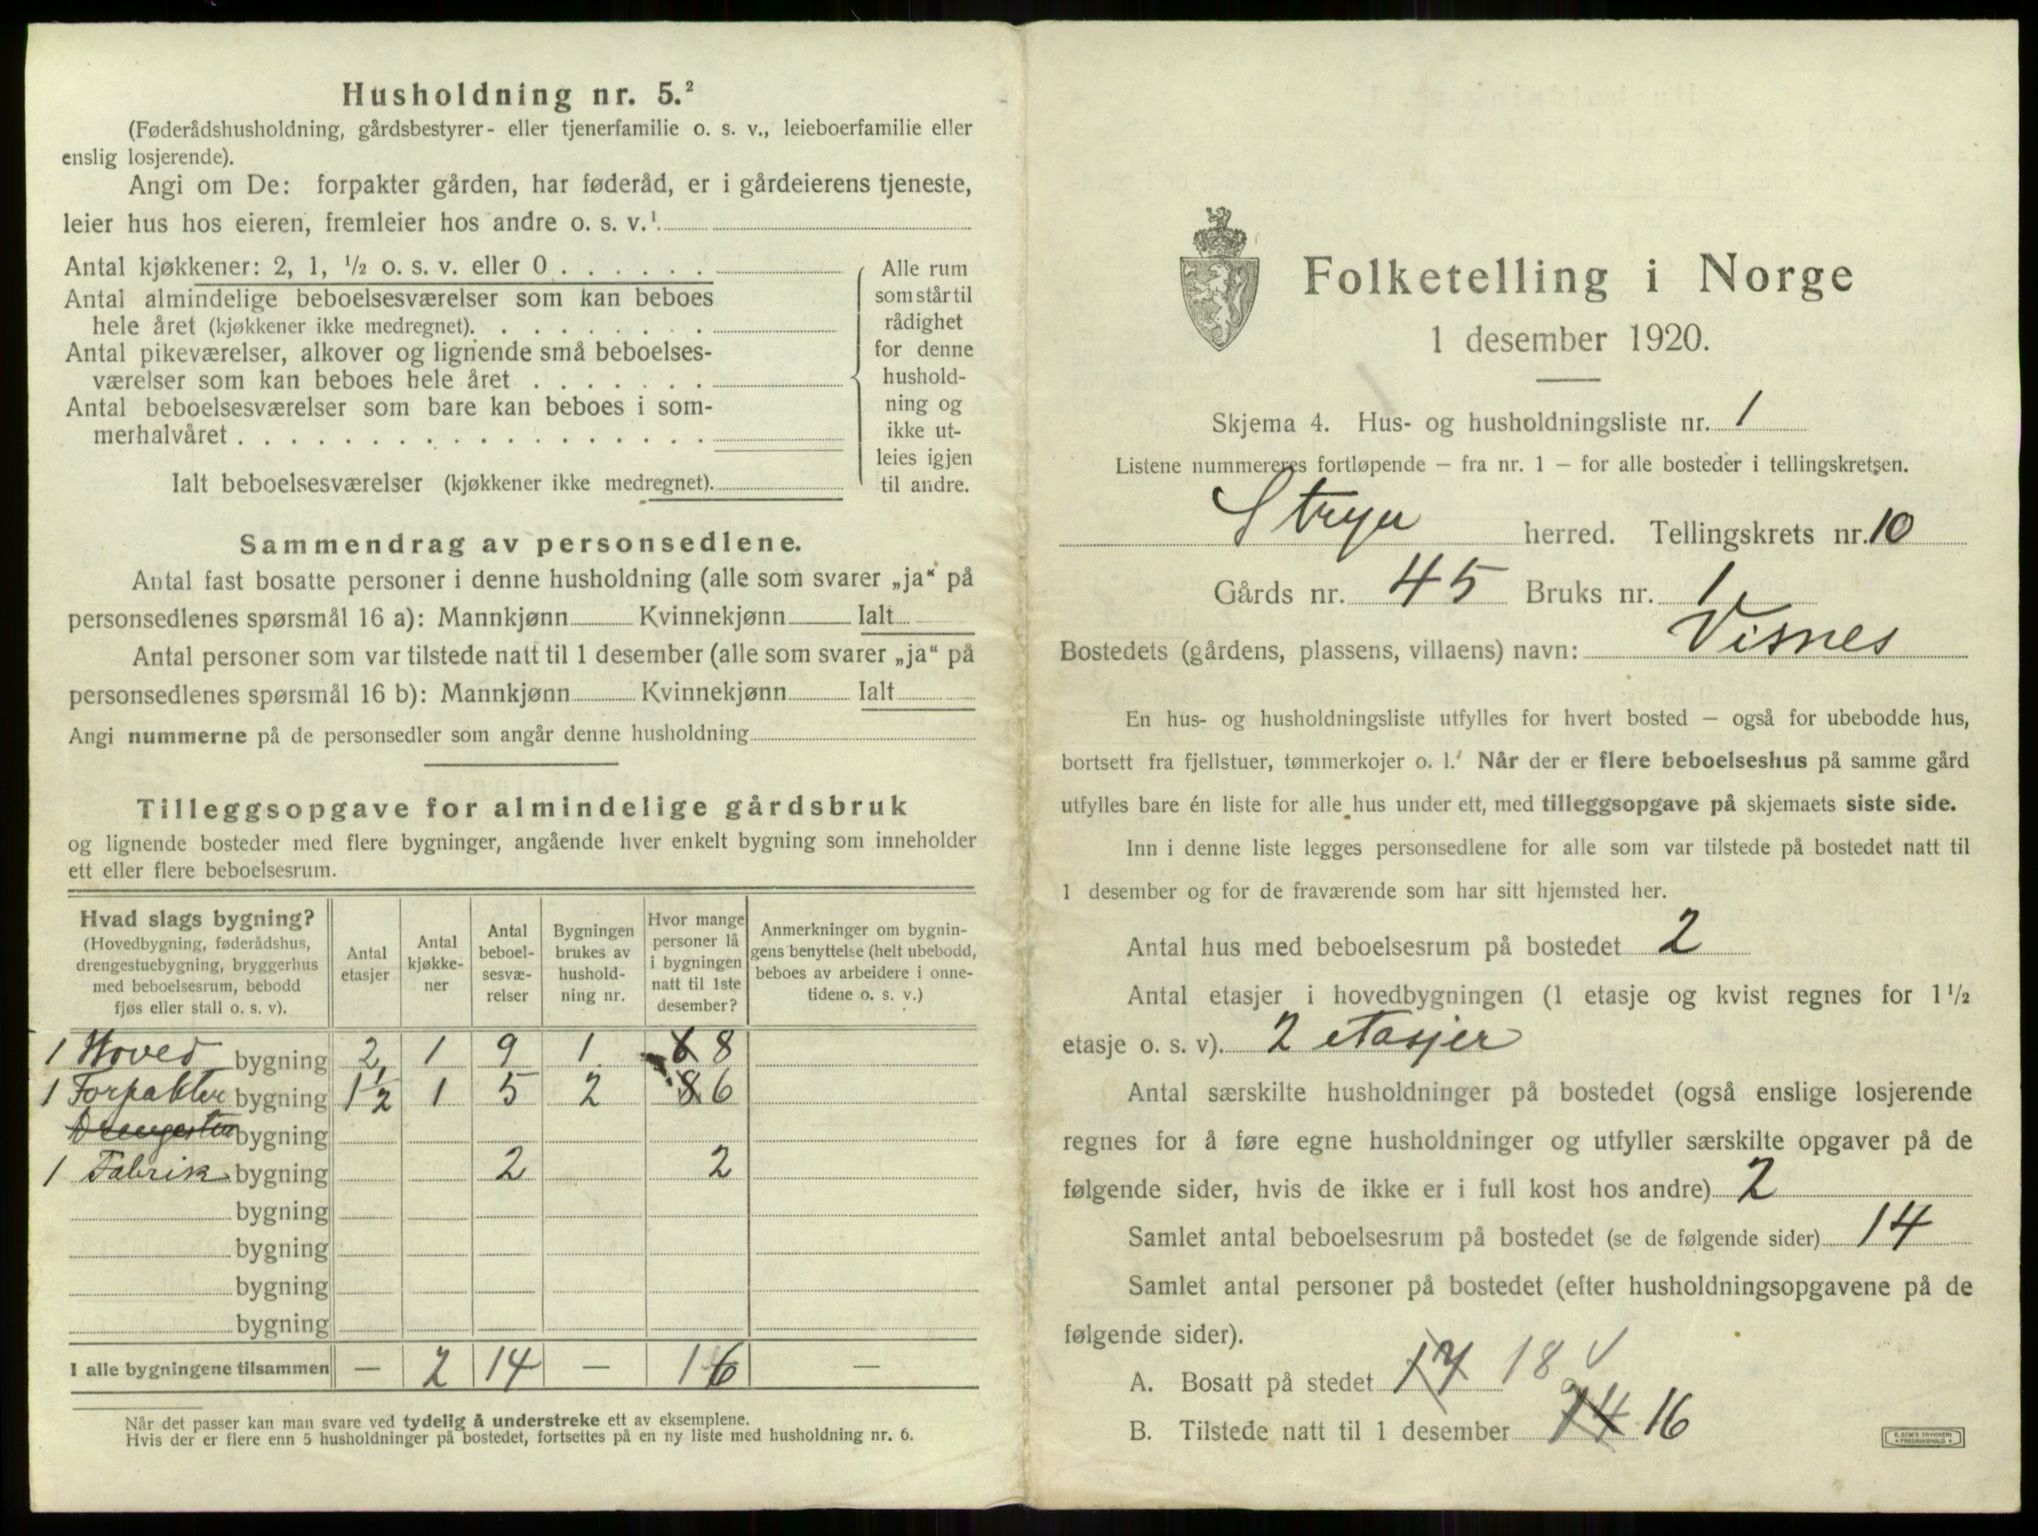 Husholdning nr. 5.²
(Føderådshusholdning, gårdsbestyrer- eller tjenerfamilie o. s. v., leieboerfamilie eller
enslig losjerende).
Angi om De: forpakter gården, har føderåd, er i gårdeierens tjeneste,
leier hus hos eieren, fremleier hos andre o. s. v.¹
Antal kjøkkener: 2, 1, ½ o. s. v. eller 0
Antal almindelige beboelsesværelser som kan beboes
hele året (kjøkkener ikke medregnet).
Antal pikeværelser, alkover og lignende små beboelses-
værelser som kan beboes hele året
Antal beboelsesværelser som bare kan beboes i som-
merhalvåret
Ialt beboelsesværelser (kjøkkener ikke medregnet).
Alle rum
som står til
rådighet
for denne
hushold-
ning og
ikke ut-
leies igjen
til andre.
Sammendrag av personsedlene.
Antal fast bosatte personer i denne husholdning (alle som svarer „ja“ på
personsedlenes spørsmål 16 a): Mannkjønn Kvinnekjønn Ialt
Antal personer som var tilstede natt til 1 desember (alle som svarer „ja“ på
personsedlenes spørsmål 16 b): Mannkjønn Kvinnekjønn Ialt
Angi nummerne på de personsedler som angår denne husholdning
Tilleggsopgave for almindelige gårdsbruk
og lignende bosteder med flere bygninger, angående hver enkelt bygning som inneholder
ett eller flere beboelsesrum.
Hvad slags bygning?
(Hovedbygning, føderådshus,
drengestuebygning, bryggerhus
med beboelsesrum, bebodd
fjøs eller stall o. s. v).
Antal
etasjer
Antal
kjøkke-
ner
Antal
beboel-
sesvæ-
relser
Bygningen
brukes av
hushold-
ning nr.
Hvor mange
personer lå
i bygningen
natt til 1ste
desember?
Anmerkninger om bygnin-
gens benyttelse (helt ubebodd,
beboes av arbeidere i onne-
tidene o. s. v.)
1 Hoved bygning 2 1 9 1 6 8
1 Forpakter bygning 1½ 1 5 2 8 6
Drengestue bygning
1 Fabrik bygning 2 2
bygning
bygning
bygning
bygning
I alle bygningene tilsammen — 2 14 — 16 —
Når det passer kan man svare ved tydelig å understreke ett av eksemplene.
Hvis der er flere enn 5 husholdninger på bostedet, fortsettes på en ny liste med husholdning nr. 6.
Folketelling i Norge
1 desember 1920.
Skjema 4. Hus- og husholdningsliste nr. 1
Listene nummereres fortløpende – fra nr. 1 – for alle bosteder i tellingskretsen.
Stryn herred. Tellingskrets nr. 10
Gårds nr. 45 Bruks nr. 1
Bostedets (gårdens, plassens, villaens) navn: Visnes
En hus- og husholdningsliste utfylles for hvert bosted – også for ubebodde hus,
bortsett fra fjellstuer, tømmerkojer o. l. Når der er flere beboelseshus på samme gård
utfylles bare én liste for alle hus under ett, med tilleggsopgave på skjemaets siste side.
Inn i denne liste legges personsedlene for alle som var tilstede på bostedet natt til
1 desember og for de fraværende som har sitt hjemsted her.
Antal hus med beboelsesrum på bostedet 2
Antal etasjer i hovedbygningen (1 etasje og kvist regnes for 1½
etasje o. s. v). 2 etasjer
Antal særskilte husholdninger på bostedet (også enslige losjerende
regnes for å føre egne husholdninger og utfyller særskilte opgaver på de
følgende sider, hvis de ikke er i full kost hos andre) 2
Samlet antal beboelsesrum på bostedet (se de følgende sider) 14
Samlet antal personer på bostedet (efter husholdningsopgavene på de
følgende sider).
A. Bosatt på stedet 17 18 √
B. Tilstede natt til 1 desember 14 16
E. SEM'S TRYKKERI
FREDRIKSHALD